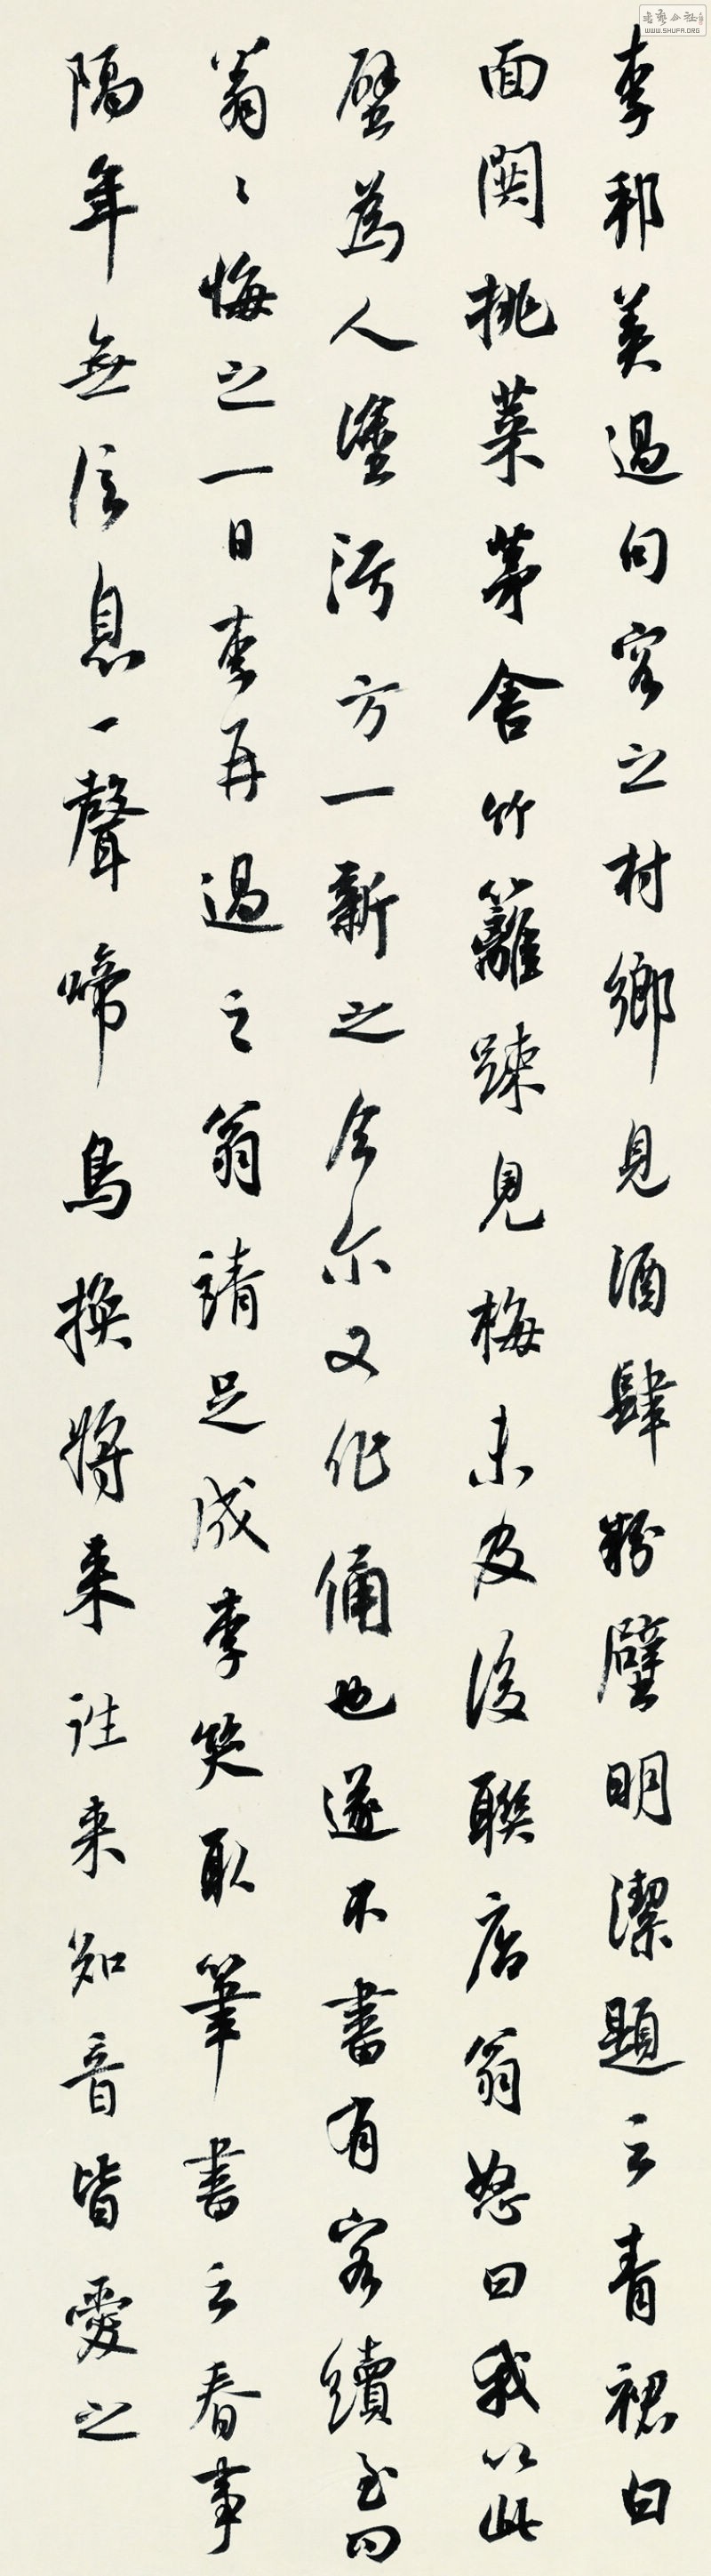 李邦美過句容之村鄉見酒肆粉壁明潔題云青裙白
面閧挑菜茅舍竹籬疎見梅未及後聯店翁怒曰我以此
壁為人塗污方一新之今尔又作俑也遂不書有客續至曰
翁〻悔之一日李再過之翁請足成李笑取筆書云春事
隔年無信息一聲啼鳥換將來誰来知音皆愛之
WWW.SHUFA.ORG